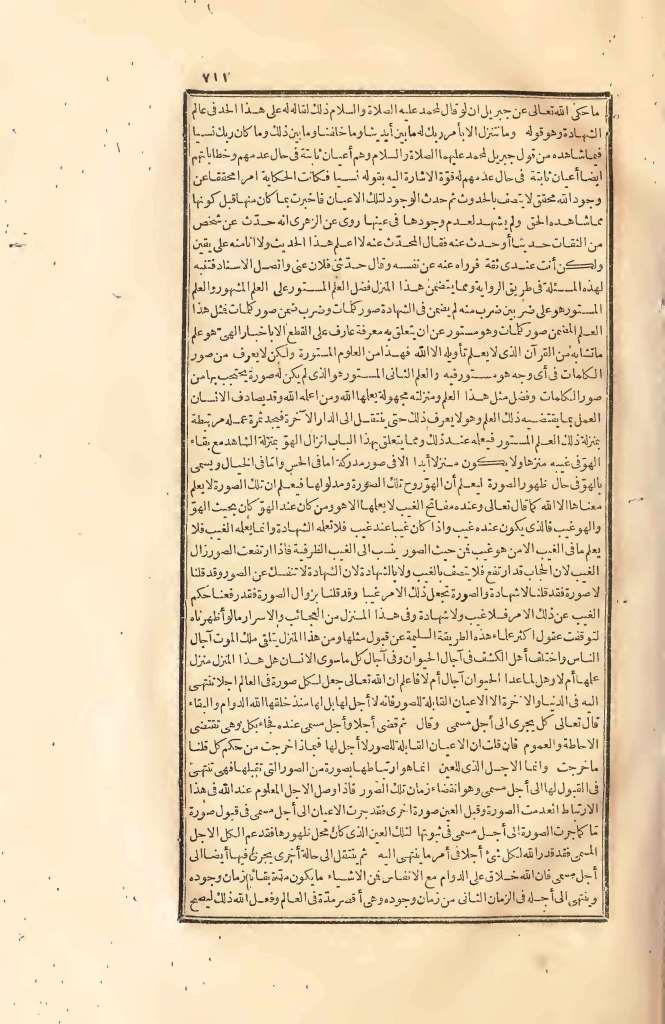 ٧١١
ما حكى الله تعالى عن جبريل ان لو قال لمحمد عليه الصلاة والسلام ذلك لقاله له على هذا الحد فى عالم
الشهادة وهو قوله وما نتنزل الا بأمر ربك له ما بين أيدينا وما خلفنا وما بين ذلك وما كان ربك نسيا
فيما شاهده من قول جبريل لمحمد عليهما الصلاة والسلام وهم أعيان ثابتة فى حال عدمهم وخطاباتهم
ايضا أعيان ثابتة فى حال عدمهم له قوة الاشارة اليه بقوله نسيا فكانت الحكاية امرا محققا عن
وجود الله محقق لا يتصف بالحدوث ثم حدث الوجود لتلك الاعيان فأخبرت بما كان منها قبل كونها
مما شاهده الحق ولم يشهد لعدم وجودها فى عينها روى عن الزهرى انه حدّث عن شخص
من الثقات حديثا أو حدث عنه فقال المحدّث عنه لا اعلم هذا الحديث ولا انا منه على يقين
ولكن أنت عندى ثقة فرواه عنه عن نفسه وقال حدّثنى فلان عنى واتصل الاسناد فتنبه
لهذه المسئلة فى طريق الرواية ومما يتضمن هذا المنزل فضل العلم المستور على العلم المشهور والعلم
المستور هو على ضربين ضرب منه لم يضمن فى الشهادة صور كلمات وضرب ضمن صور كلمات فمثل هذا
العلم المضمن صور كلمات وهو مستور عن ان يتعلق به معرفة عارف على القطع الا باخبار الهىّ هو علم
ما تشابه من القرآن الذى لا يعلم تأويله الا الله فهذا من العلوم المستورة ولكن لا يعرف من صور
الكلمات فى أى وجه هو مستور فيه والعلم الثانى المستور هو الذى لم يكن له صورة يحتجب بها من
صور الكلمات وفضل مثل هذا العلم ومنزلته مجهولة يعلمها الله ومن اعلمه الله وقد يصادف الانسان
العمل بما يقتضيه ذلك العلم وهو لا يعرف ذلك حتى ينتقل الى الدار الآخرة فيجد ثمرة عمله مرتبطة
بمنزلة ذلك العلم المستور فيعلمه عند ذلك ومما يتعلق بهذا الباب انزال الهو بمنزلة الشاهد مع بقاء
الهو فى غيبه منزها ولا يكون منزلا أبدا الا فى صور مدركة امّا فى الحس وامّا فى الخيال ويسمى
بالهو فى حال ظهور الصورة ليعلم أن الهو روح تلك الصورة ومدلولها فيعلم ان تلك الصورة لا يعلم
معناها الا الله كما قال تعالى وعنده مفاتح الغيب لا يعلمها الا هو ومن كان عند الهو كان بحيث الهو
والهو غيب فالذى يكون عنده غيب واذا كان غيبا عند غيب فلا تعلمه الشهادة وانما يعلمه الغيب فلا
يعلم ما فى الغيب الا من هو غيب فمن حيث الصور ينسب الى الغيب الظرفية فاذا ارتفعت الصور زال
الغيب لان الحجاب قد ارتفع فلا يتصف بالغيب ولا بالشهادة لان الشهادة لا تنفك عن الصور وقد قلنا
لا صورة فقد قلنا لا شهادة والصورة تجعل ذلك الامر غيبا وقد قلنا بزوال الصورة فقد رفعنا حكم
الغيب عن ذلك الامر فلا غيب ولا شهادة وفى هذا المنزل من العجائب والاسرار ما لو أظهرناه
لتوقفت عقول اكثر علماء هذه الطريقة السليمة عن قبول مثلها ومن هذا المنزل يتلقى ملك الموت آجال
الناس واختلف أهل الكشف فى آجال الحيوان وفى آجال كل ما سوى الانسان هل هذا المنزل منزل
علمها أم لا وهل لما عدا الحيوان آجال أم لا فاعلم ان الله تعالى جعل لكل صورة فى العالم اجلا تنتهى
اليه فى الدنيا والآخرة الا الاعيان القابلة للصور فانه لا أجل لها بل لها منذ خلقها الله الدوام والبقاء
قال تعالى كل يجرى الى أجل مسمى وقال ثم قضى أجلا وأجل مسمى عنده فجاء بكل وهى تقتضى
الاحاطة والعموم فان قلت ان الاعيان القابلة للصور لا أجل لها فبماذا خرجت من حكم كل قلنا
ما خرجت وانما الاجل الذى للعين انما هو ارتباطها بصورة من الصور التى تقبلها فهى تنتهى
فى القبول لها الى أجل مسمى وهو انقضاء زمان تلك الصور فاذا وصل الاجل المعلوم عند الله فى هذا
الارتباط انعدمت الصورة وقبل العين صورة اخرى فقد جرت الاعيان الى أجل مسمى فى قبول صورة
تا كما جرت الصورة الى أجل مسمى فى ثبوتها لتلك العين الذى كان محل ظهورها فقد عم الكل الاجل
المسمى فقد قدر الله لكل شئ أجلا فى أمر ما ينتهى اليه ثم ينتقل الى حالة أخرى يجرى فيها أيضا الى
أجل مسمى فان الله خلاق على الدوام مع الانفاس فمن الاشياء ما يكون مدّة بقائه زمان وجوده
وينتهى الى أجله فى الزمان الثانى من زمان وجوده وهى أقصر مدّة فى العالم وفعل الله ذلك ليصح